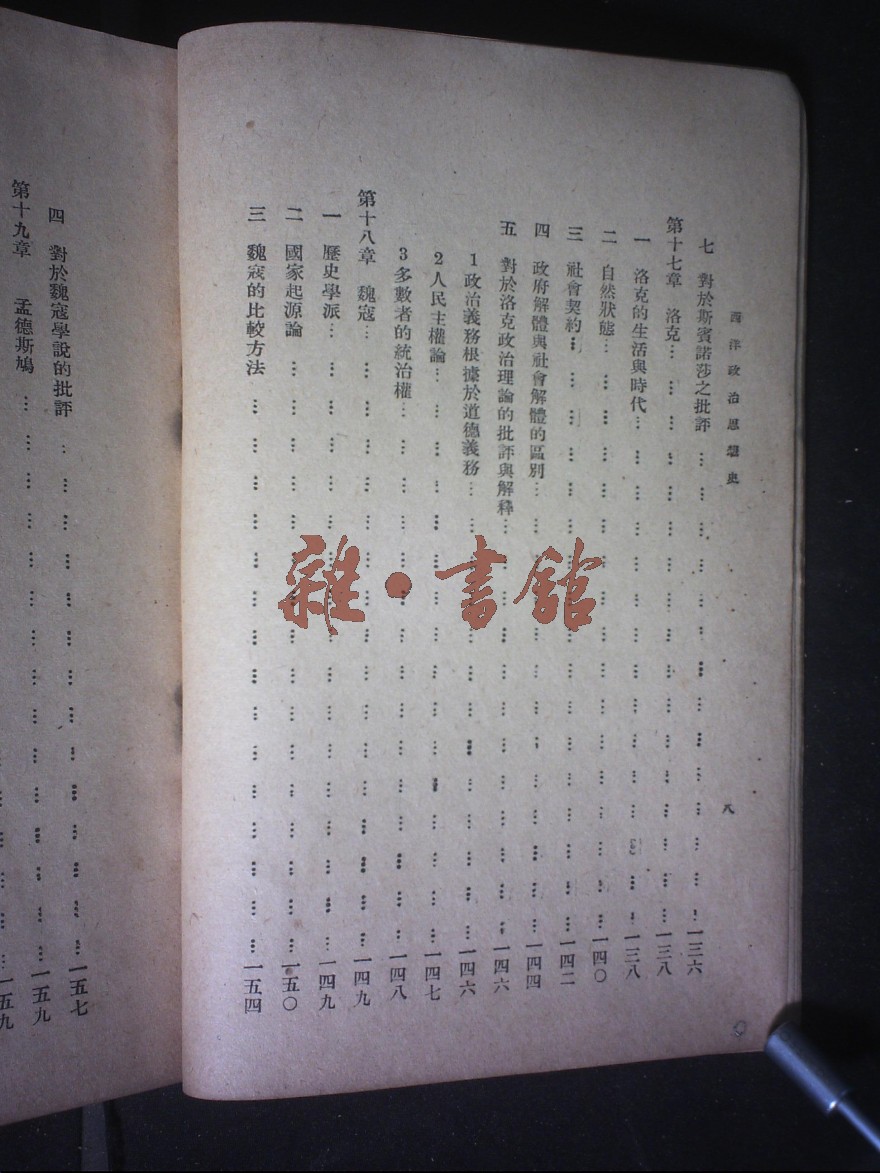 西洋政治思想史
八
七 對於斯賓諾莎之批評 … 一三六
第十七章 洛克 … 一三八
一 洛克的生活與時代 … 一三八
二 自然狀態 … 一四〇
三 社會契約 … 一四二
四 政府解體與社會解體的區別 … 一四四
五 對於洛克政治理論的批評與解釋 … 一四六
1 政治義務根據於道德義務 … 一四六
2 人民主權論 … 一四七
3 多數者的統治權 … 一四八
第十八章 魏寇 … 一四九
一 歷史學派 … 一四九
二 國家起源論 … 一五〇
三 魏寇的比較方法 … 一五四
四 對於魏寇學說的批評 … 一五七
第十九章 孟德斯鳩 … 一五九
一五九
雜·書館